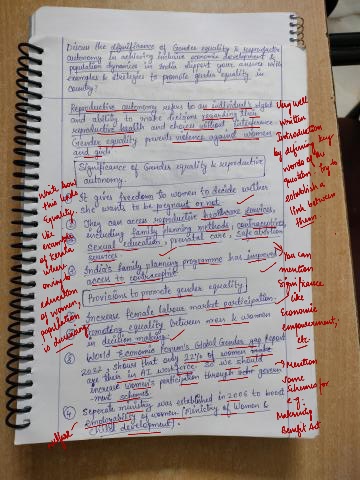 Discuss the significance of Gender equality & reproductive
autonomy in achieving inclusive economic development &
population dynamics in India support your answer with
examples & strategies to promote gender equality in
Country?
Reproductive autonomy refers to an individual's right
and ability to make decisions regarding their
reproductive health and choices without interference.
Gender equality prevents violence against women
and girls
Very well
written
Introduction
by defining key
words of the
question, try to
establish a
link between
them
Significance of Gender equality & reproductive
autonomy.
① It gives freedom to women to decide wether
She wants to be pregnant or not.
② They can access reproductive healthcare services,
including family planning methods, contraceptives,
Sexual education, prenatal care, safe abortion
services.
③ India's family planning programme has improved
access to contraceptive
Write how
this leads
Equality,
via
example
of Kerala
where
owing to
education
of women,
population
is
You can
mention
Significance
like
Economic
empowerment,
etc
Provisions to promote gender equality
① Increase female labour market participation.
② Promoting equality between men & women
in decision making.
③ World Economic Forum's Global Gender gap Report
2023; shows that only 22% of women make
up their in AI workforce. So we should
increase women's participation through govern
-ment schemes.
④ Seperate ministry was established in 2006 to boost
of women. [Ministry of Women &
Child development].
→ Mention
Some
Schemes for
eg:
Maternity
Benefit Act